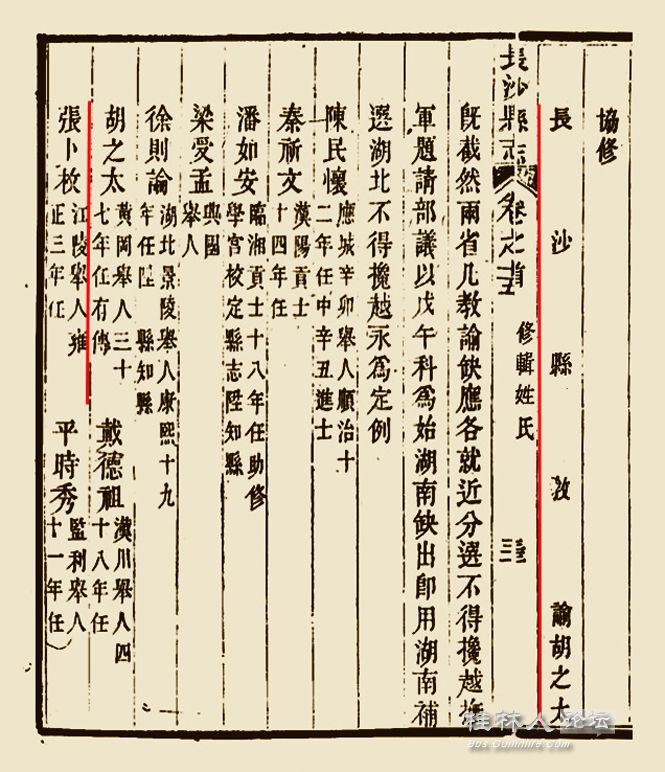 協修
長沙縣教諭胡之太
長沙縣志 卷之首 修輯姓氏
既截然兩省凡教諭缺應各就近分選不得攙越撫
軍題請部議以戊午科爲始湖南缺出卽用湖南補
選湖北不得攙越永爲定例
陳民懷 應城辛卯舉人順治十
二年任中辛丑進士
秦祈文 漢陽貢士
十四年任
潘如安 臨湘貢士十八年任助修
學宮校定縣志陞知縣
梁受孟 興國
舉人
徐則論 湖北景陵舉人康熙十九
年任陞 縣知縣
胡之太 黃岡舉人三十
七年任有傳
戴德祖 漢川舉人四
十八年任
張卜枚 江陵舉人雍
正三年任
平時秀 監利舉人
十一年任
桂林人论坛
bbs.Guilinlife.com